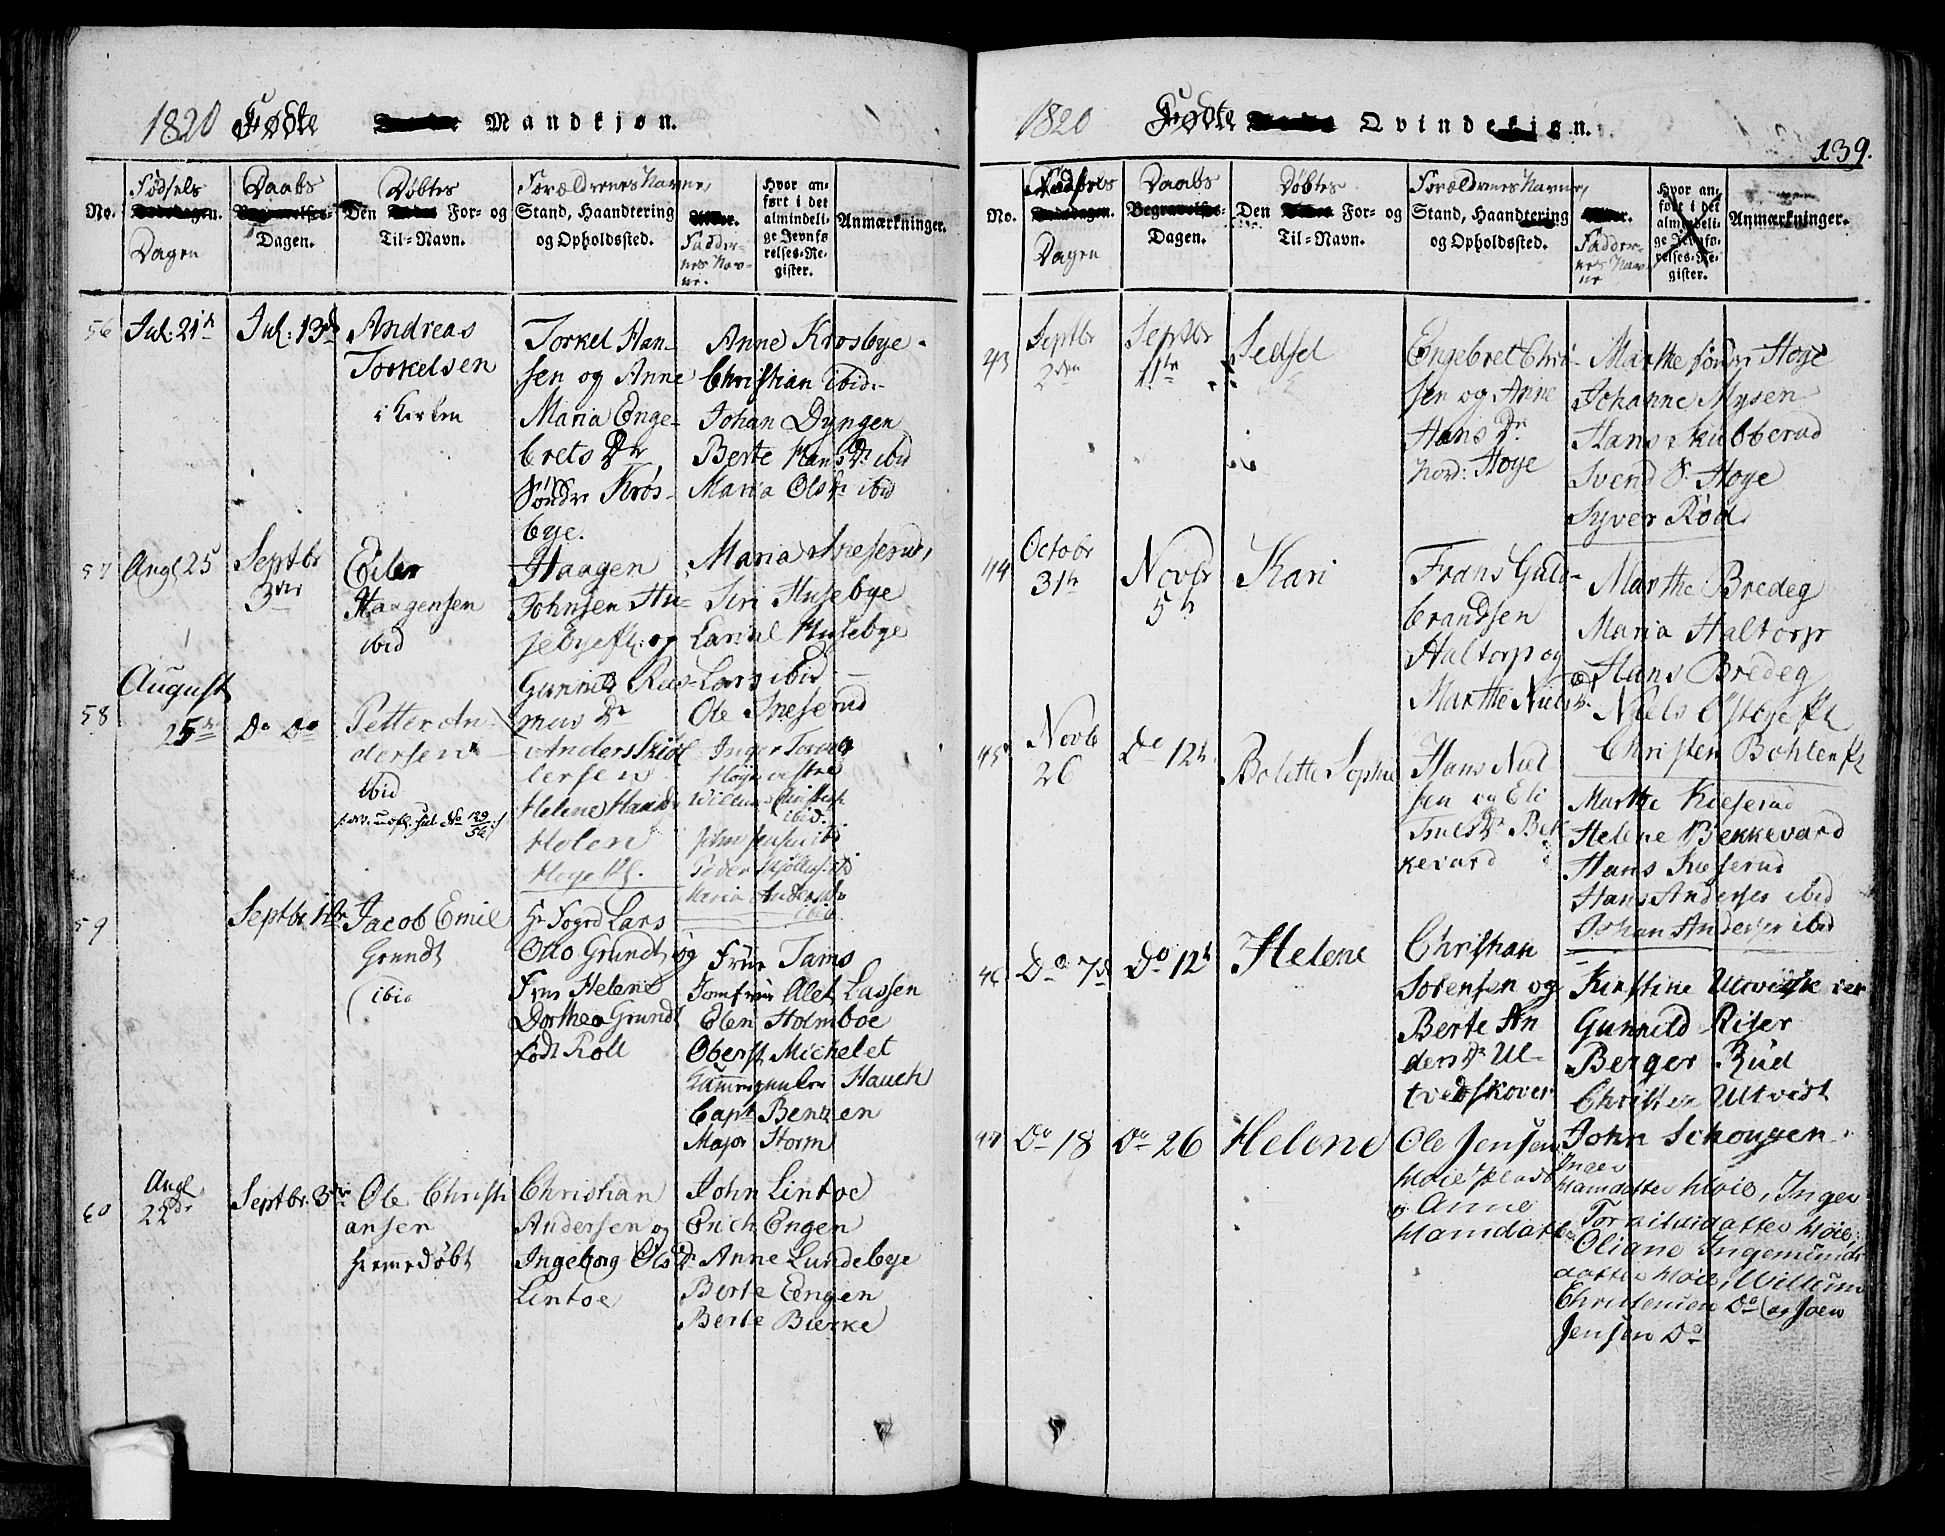 1820 Fødte Mandkjøn.
No.
Fødsels
Dagen
Daabs
Dagen.
Døbtes
Den For- og
Til-Navn.
Forældrenes Navne,
Stand, Haandtering
og Opholdssted.
Faddernes Navne.
Hvor anført i det almindelige Jevnførelses-Register.
Anmærkninger.
56 Jul: 21de Jul: 13d
Andreas
Torkelsen
i Kirken
Torkel Han-
sen og Anne
Maria Enge-
brets Dr
Søndre Krøs-
bye.
Anne Krosbye
Christian ibid
Johan Dyngen
Berte Hans Dr ibid
Maria Ols Dr ibid
57 Augl 25
Septbr
3die
Eiler
Haagensen
ibid
Haagen
Johnsen Hu-
sebye og
Gunnild Ras-
mus Dr
Maria Sneserud
Siri Husebye
Husebye
Lars ibid
Ole Sneserud
58
August
25de
Do Do
Petter An-
dersen
ibid
No 139/56
Anders
Helene
Holen
Høye Pl.
ibid
ibid
59
Septbr
Jacob Emil
Grundt
ibid
Hr Sogrd Lars
Otto Grundt og
Frue Helene
Dorthea Grundt
født Roll
Frue Tams
Jomfrue Alet Lassen
Elen Holmboe
Oberst Michelet
Hauch
Capt Benzen
Major Storm
60
Augl
22de
Septbr: 3die
Ole Christi
ansen
Hiemmedøbt
Christian
Andersen og
Ingeborg Ols Dr
Lintoe
John Lintoe
Erich Engen
Anne Lundebye
Berte Engen
Berte Bierke
1820 Fødte Qvindekjøn.
139.
No.
Fødsels
Dagen
Daabs
Dagen.
Døbtes
Den For- og
Til-Navn.
Forældrenes Navne,
Stand, Haandtering
og Opholdssted.
Faddernes Navne
Hvor anført i det almindelige Jevnførelses-Register.
Anmærkninger.
43
Septbr
2den
Septbr
Sedsel
Engebret Chri-
sen og Anne
Hans Dr
Nord: Høye
Marthe Søndr Høye
Johanne Mysen
Hans Skubberud
Svend S. Høye
Syver Rød
44
Octobr
31te
Novbr
5te
Kari
Frans Guld-
brandsen
Haltorp og
Marthe Niels Dr
Marthe Bredeg
Maria Haltorp
Hans Bredeg
Niels Østbye Pl
Christen Bohlen Pl
45
Novb
26
Do 12te
Bolette Sophie
Hans Niel
sen og Eli
Truls Dr Bek
kevard
Marthe Kieserud
Helene Bekkevard
Hans
Hans Andersen ibid
Johan Andersen ibid
46 Do 7d Do 12te
Helene
Christian
Sørensen og
Berte An
ders Dr Ul-
tvedskover
Kirstine
Gunnild Riser
Berger Rud
Christen Ultvedt
47 Do 18 Do 26
Helene
Ole Jensen
Høie Plads
og Anne
Hansdatt
John Schougen
Inger
Hansdatter Høie, Inger
Torkildsdatter Høie
Oliane Ingemunds
datter Høie, Willum
Christensen Do og Joen
Jensen Do